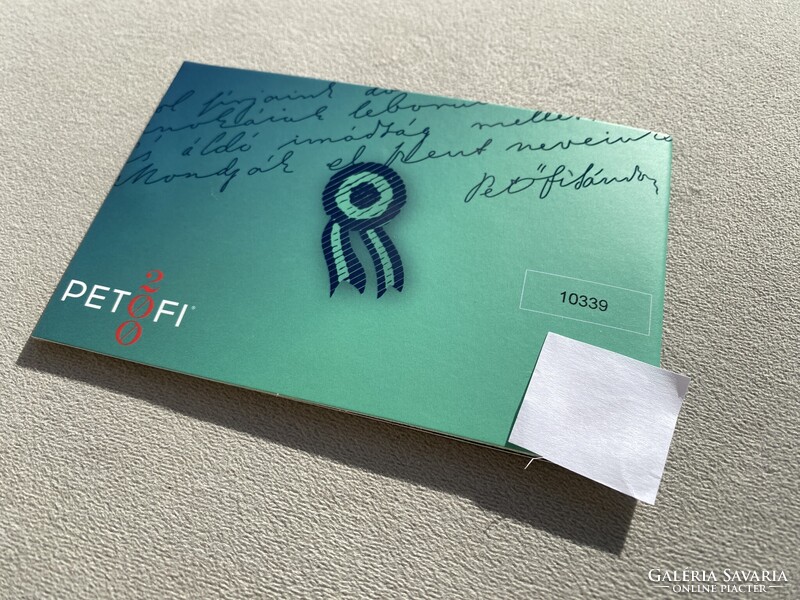 ol fijaink
unokáink leborul
s áldó imádság mellett
Mondják el szent neveinket
Petőfi Sándor
10339
PETŐFI
200
GALÉRIA SAVARIA
ONLINE PIACTÉR